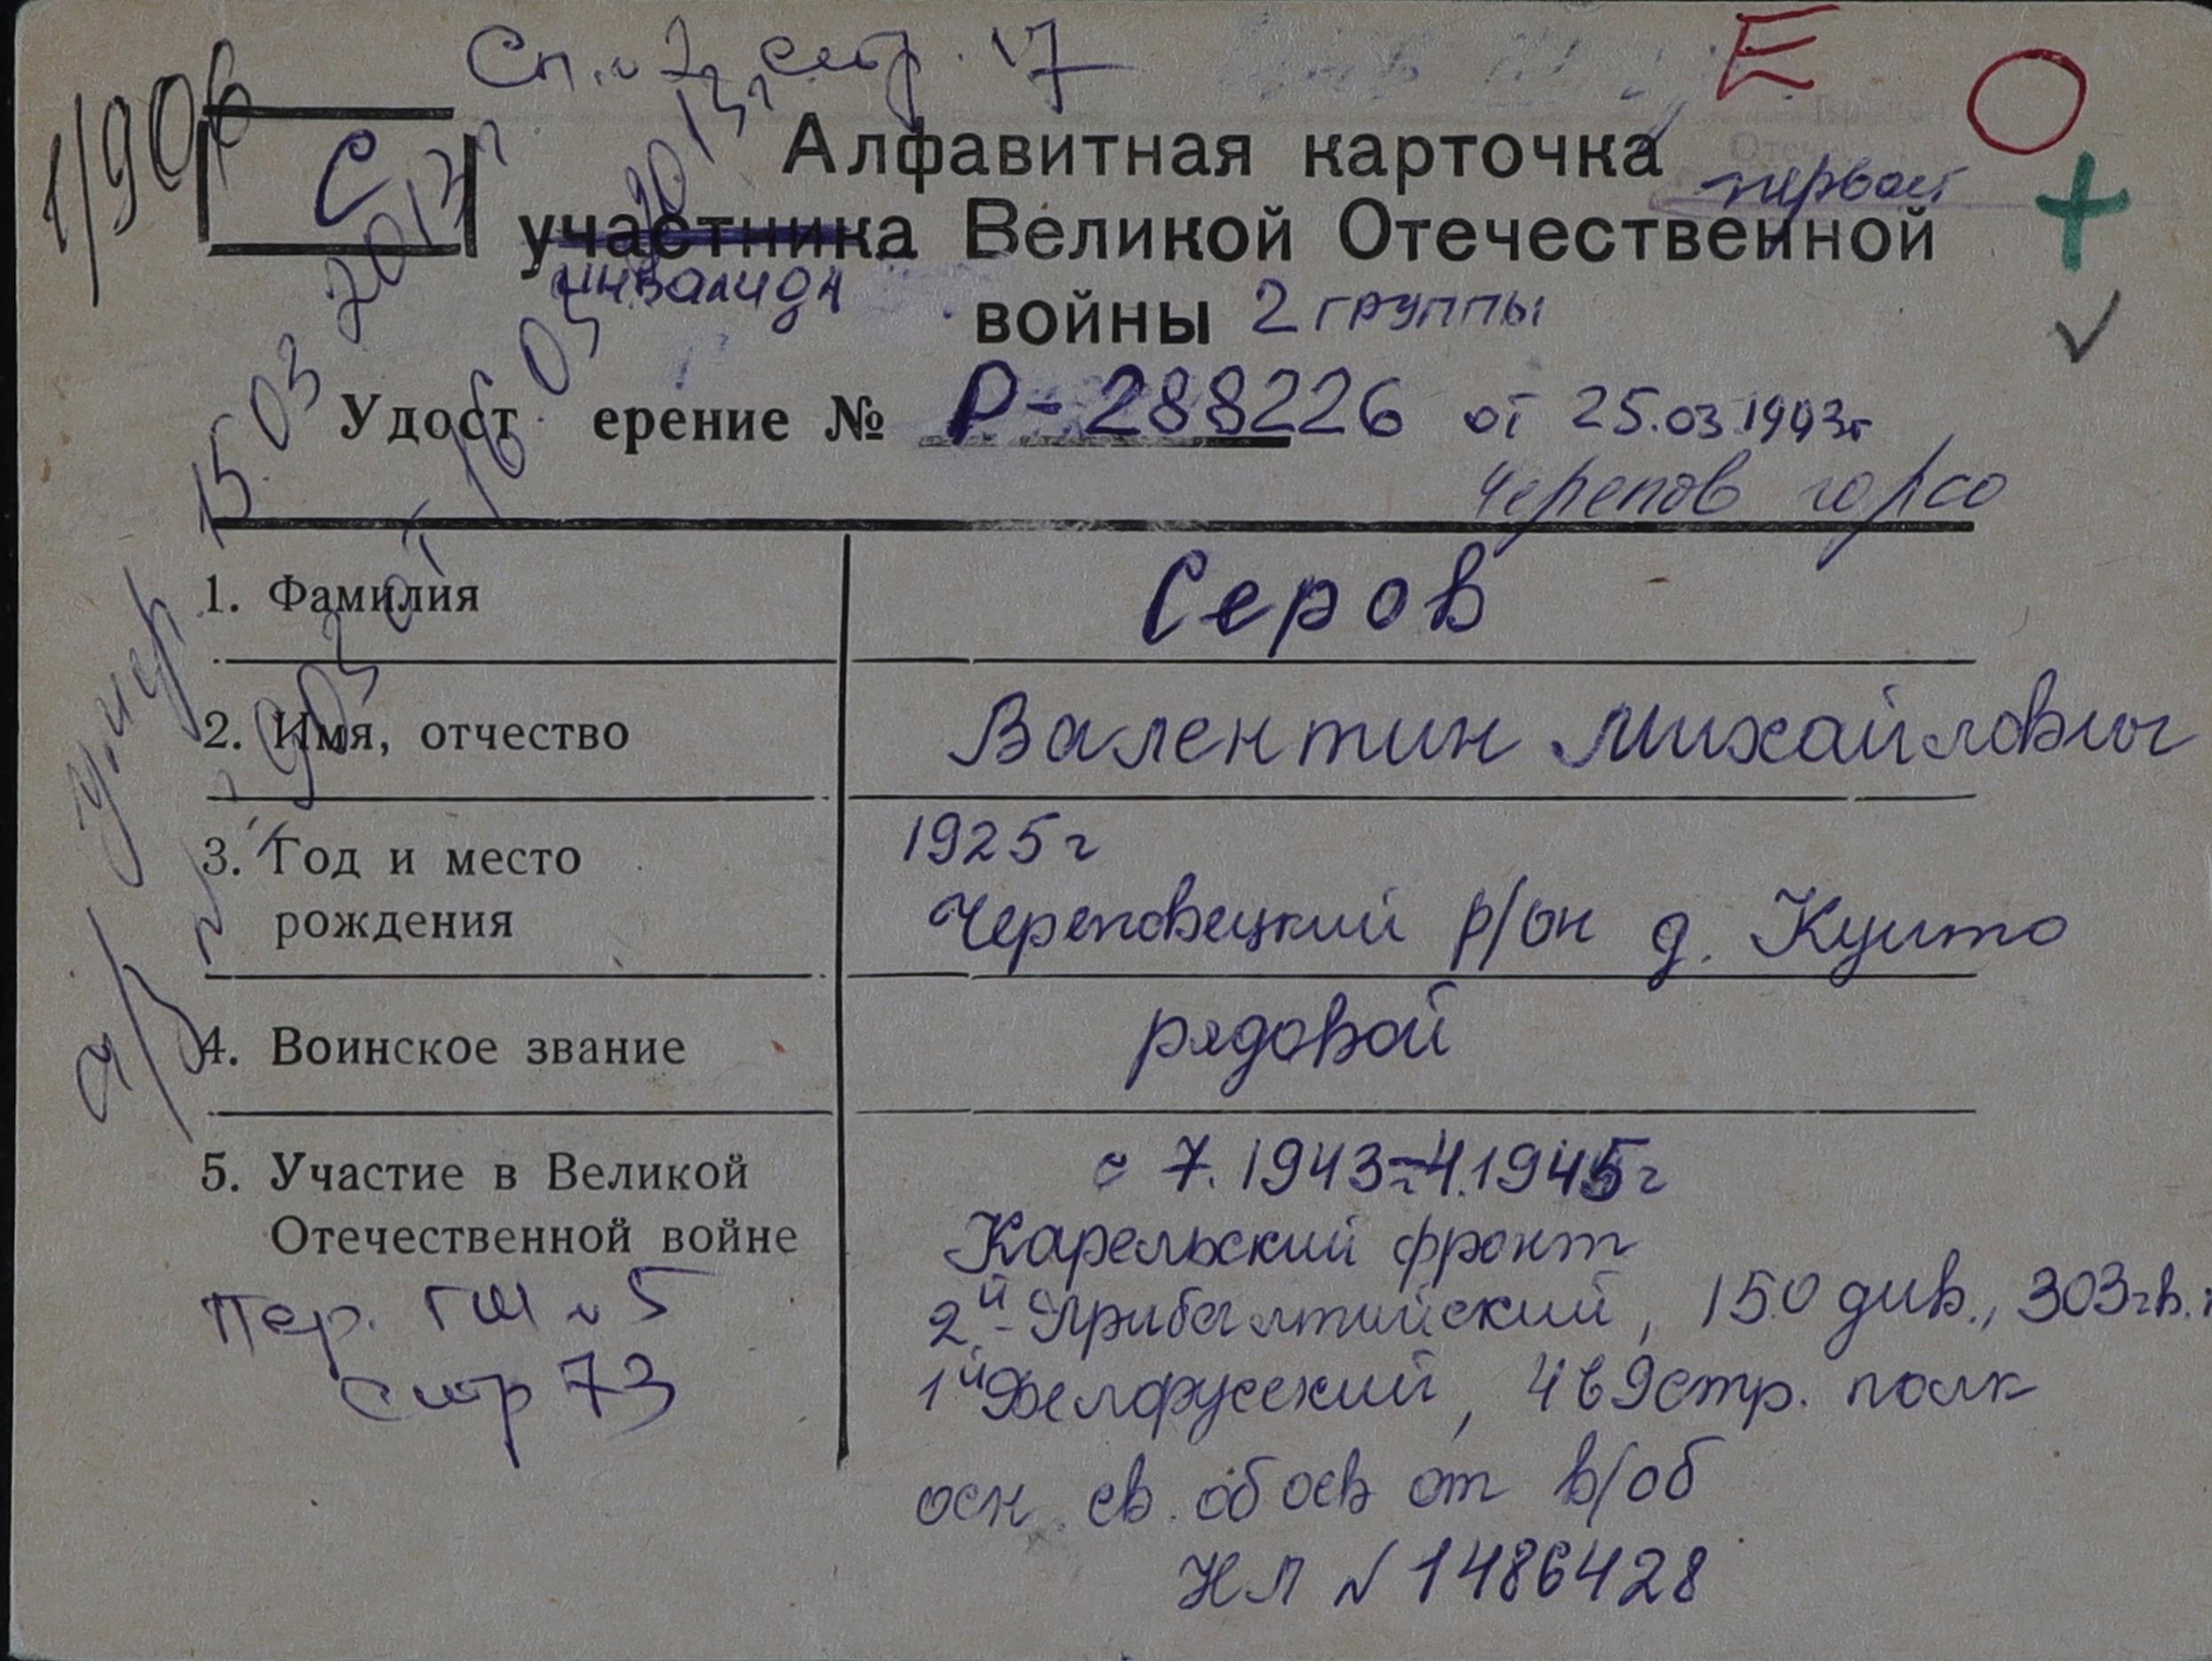 Сп. № 2, стр. 17
Е
О
1/906
С
Алфавитная карточка
первая
участника Великой Отечественной
инвалида
войны 2 группы
Удост ерение № Р-288226 от 25.03.1993г
Черепов горсо
1. Фамилия Серов
2. Имя, отчество Валентин Михайлович
3. Год и место 1925г
рождения Череповецкий р/он д.
4. Воинское звание рядовой
5. Участие в Великой с 7.1943-4.1945г
Отечественной войне Карельский фронт
Пер. ГШ № 5 2й-Прибалтийский, 150 див., 303гв.
стр 73 1й Белорусский, 469 стр. полк
осн. св. об осв от в/об
НЛ № 1486428
умер 15.03 2013г
а/з № 903 от 16 03 2013г